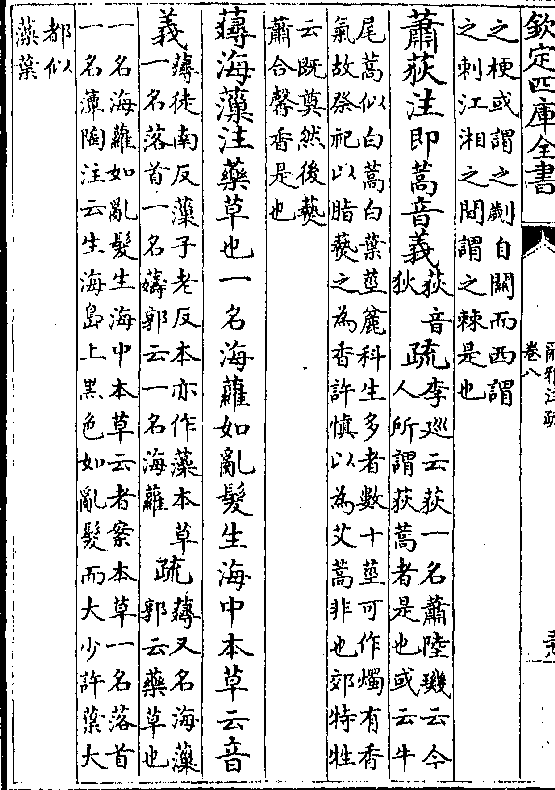 欽定四庫全書
爾雅注疏
卷八
之梗或謂之劌自關而西謂
之刺江湘之間謂之棘是也
蕭荻注即蒿音義荻音狄疏李廵云荻一名蕭陸璣云今
人所謂荻蒿者是也或云牛
尾蒿似白蒿白葉莖麄科生多者數十莖可作燭有香
氣故祭祀以脂爇之為香許慎以為艾蒿非也郊特牲
云既奠然後爇
蕭合馨香是也
薚海藻注藥草也一名海蘿如亂髮生海中本草云音
義薚徒南反藻子老反本亦作薻本草
一名落首一名薚郭云一名海蘿疏薚又名海藻
郭云藥草也
一名海蘿如亂髮生海中本草云者案本草一名落首
一名藫陶注云生海島上黑色如亂髮而大少許葉大
都似
藻葉